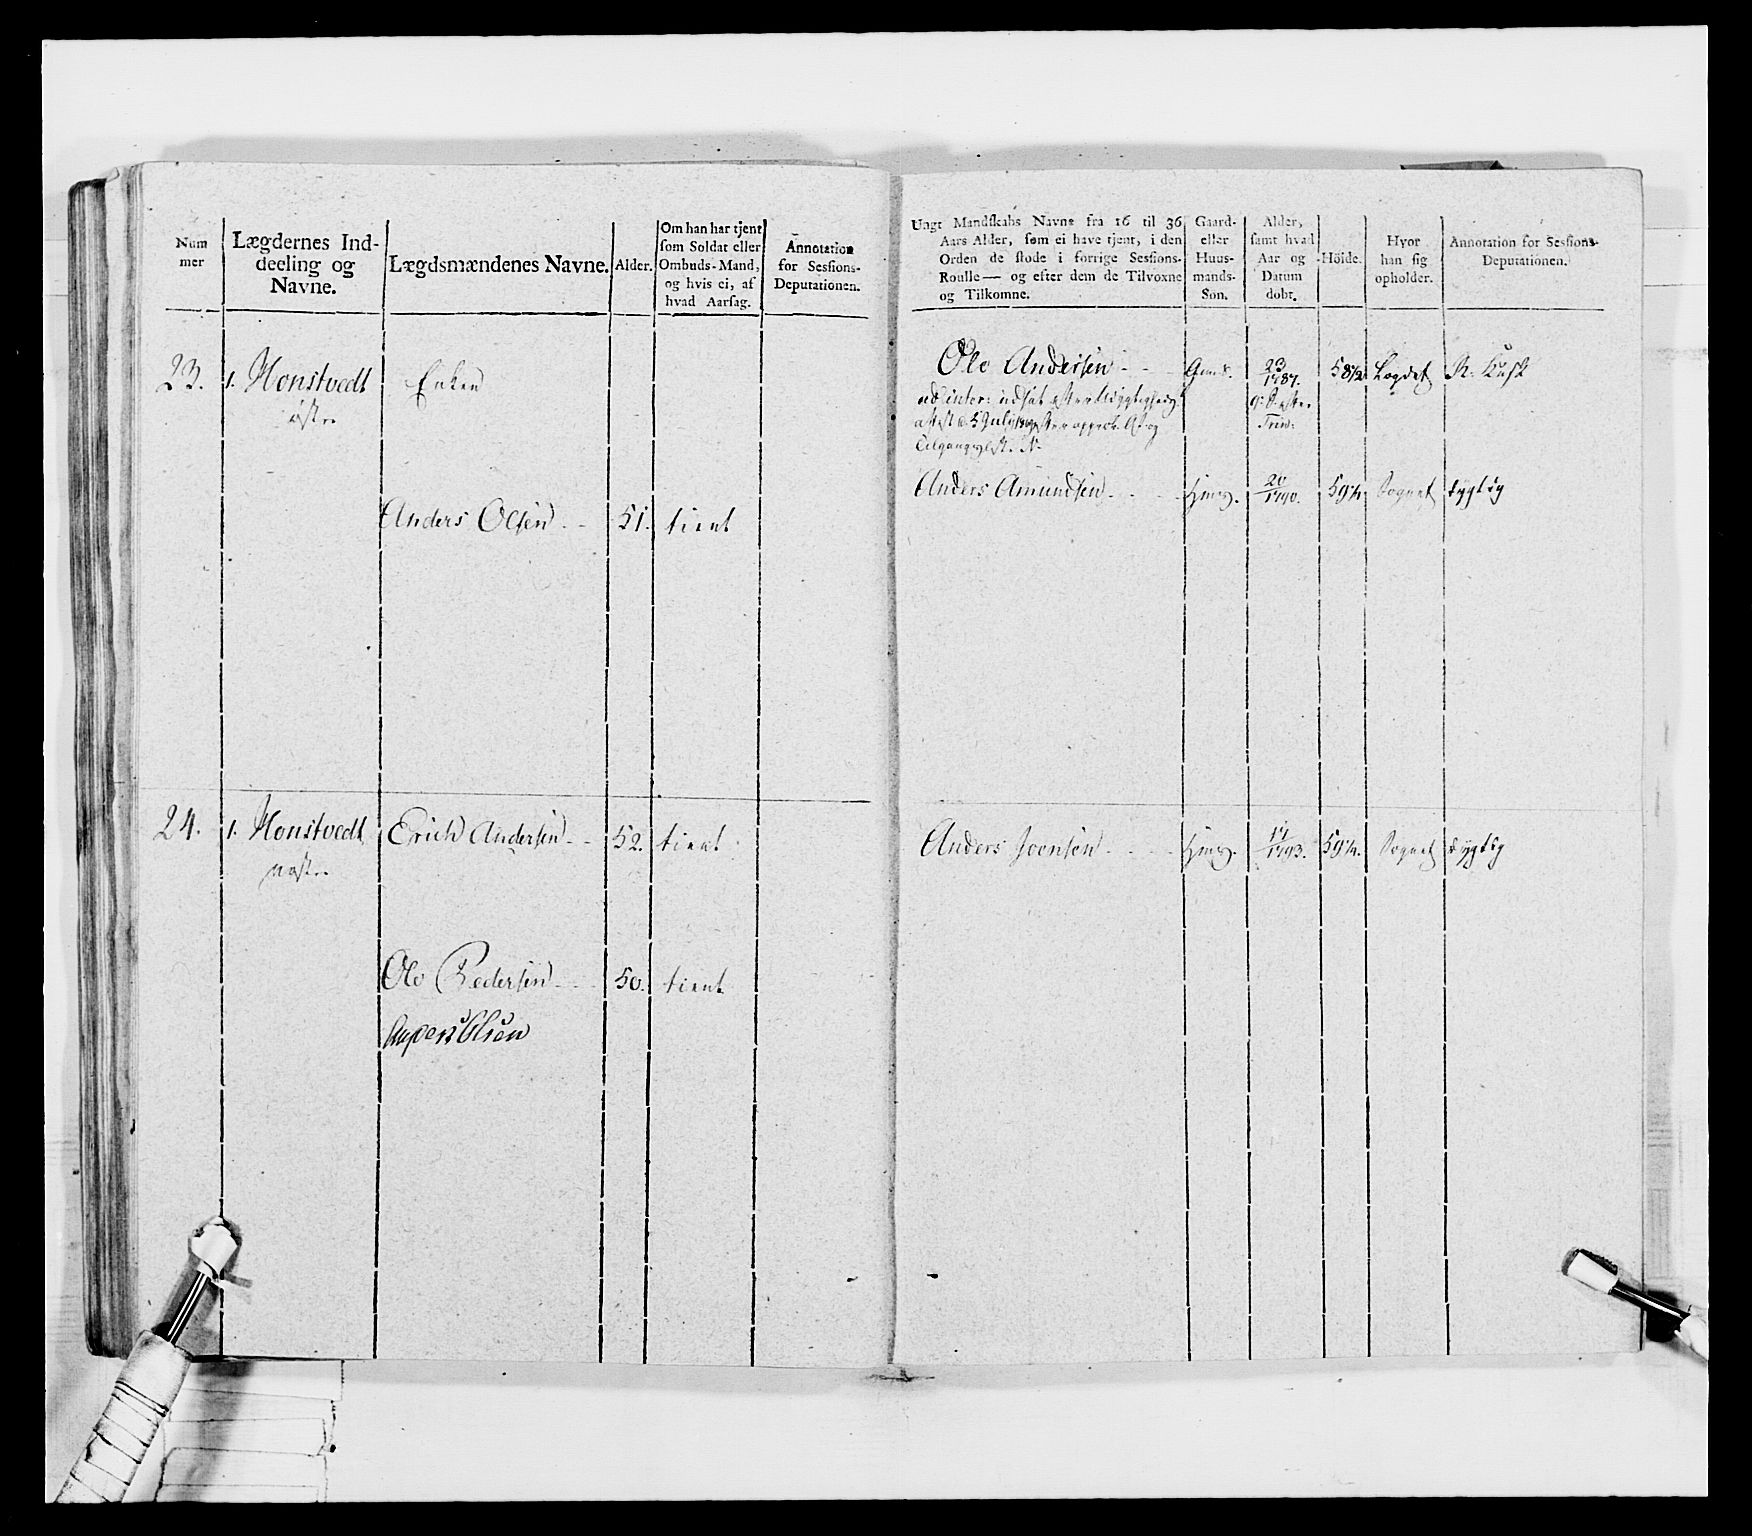 Num
mer
Lægdernes Ind-
deeling og
Navne.
Lægdsmændenes Navne.
Alder.
Om han har tjent
som Soldat eller
Ombuds-Mand,
og hvis ei, af
hvad Aarsag.
Annotation
for Sessions-
Deputationen.
23.
1. Honstvedt
østre
Enken
Anders Olsen
51.
tient
24.
1. Honstvedt
Erich Andersen
52.
tient
Ole Pedersen
50.
tient
Olsen
Ungt Mandskabs Navne fra 16 til 36
Aars Alder, som ei have tjent, i den
Orden de stode i forrige Sessions-
Roulle — og efter dem de Tilvoxne
og Tilkomne.
Gaard-
eller
Huus-
mands-
Søn.
Alder,
samt hvad
Aar og
Datum
døbt.
Höide.
Hvor
han sig
opholder.
Annotation for Sessions-
Deputationen.
Ole Andersen
23
1787.
58½
Lægdet
5 July
Trin:
Anders Amundsen
20
1790.
59¼
Sognet
dygtig
Anders Joensen
17
1793.
59¼.
Sognet
dygtig